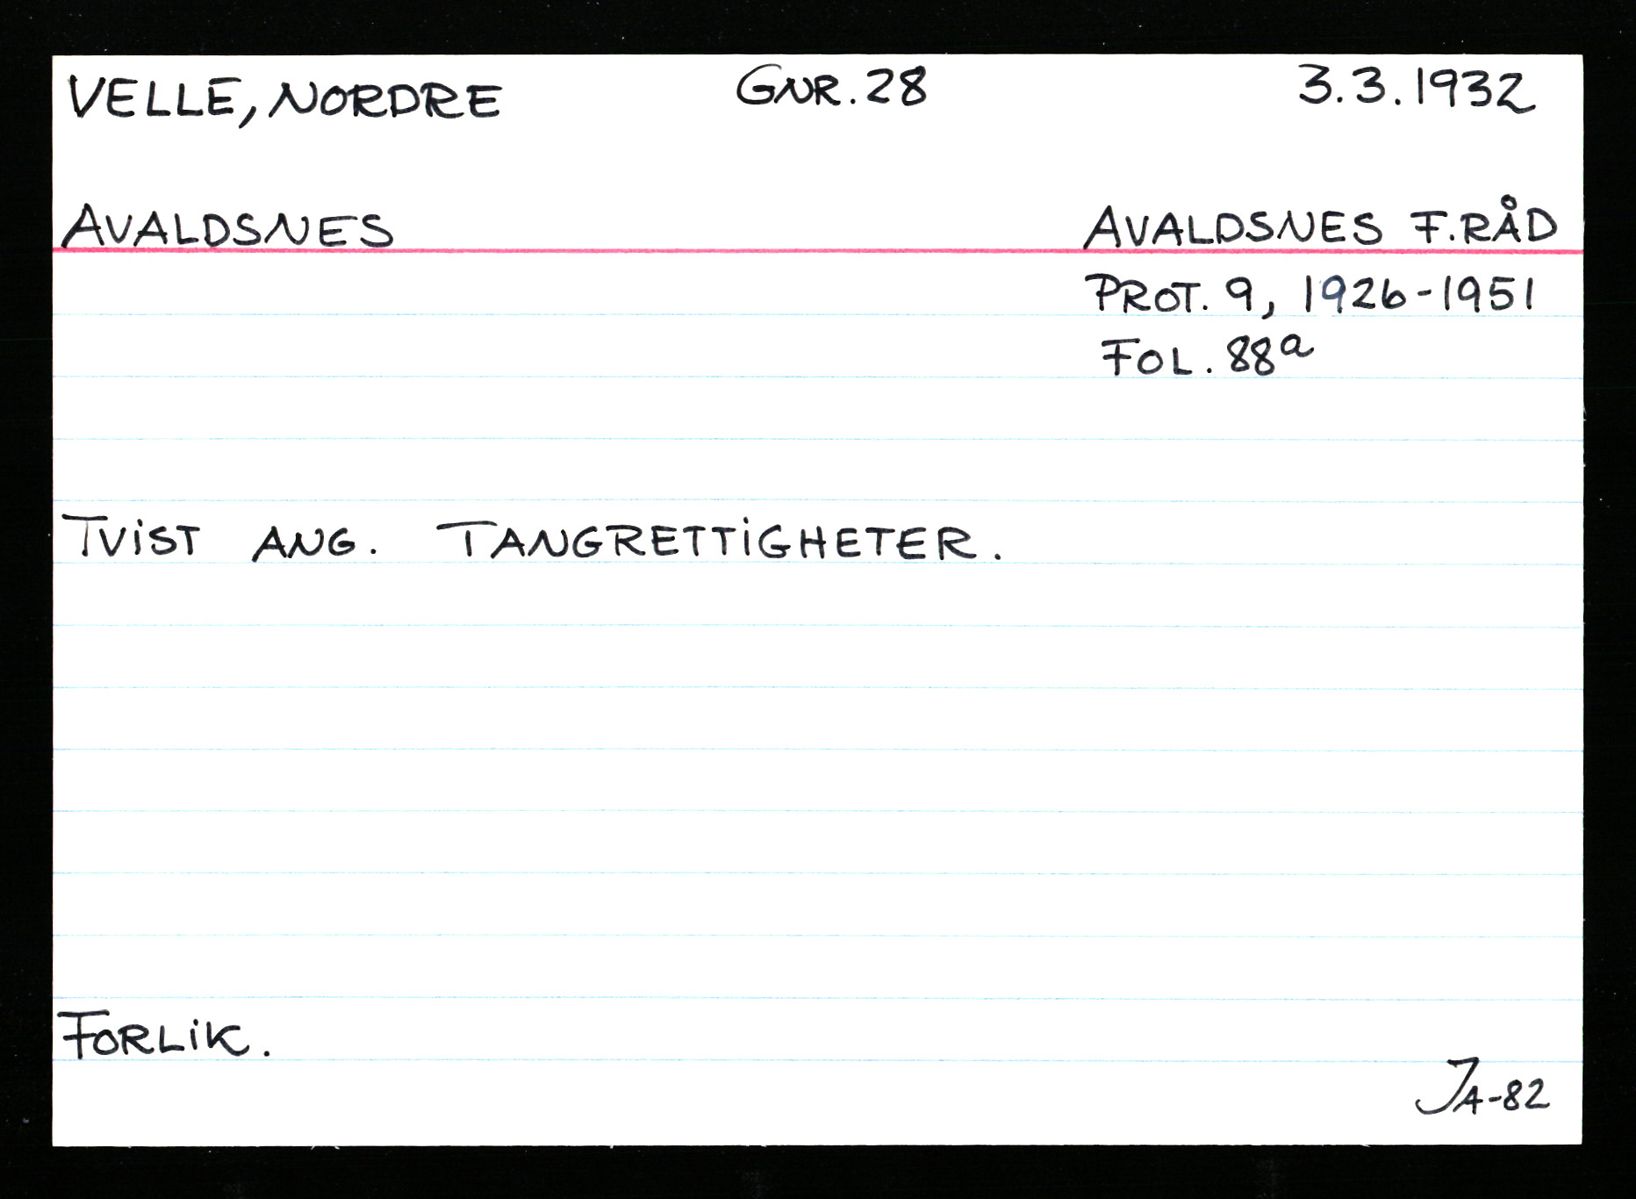 VELLE, NORDRE GNR. 28 3.3.1932
AVALDSNES AVALDSNES F.RÅD
PROT. 9, 1926-1951
FOL. 88a
TViST ANG. TANGRETTiGHETER.
FORLiK.
JA-82